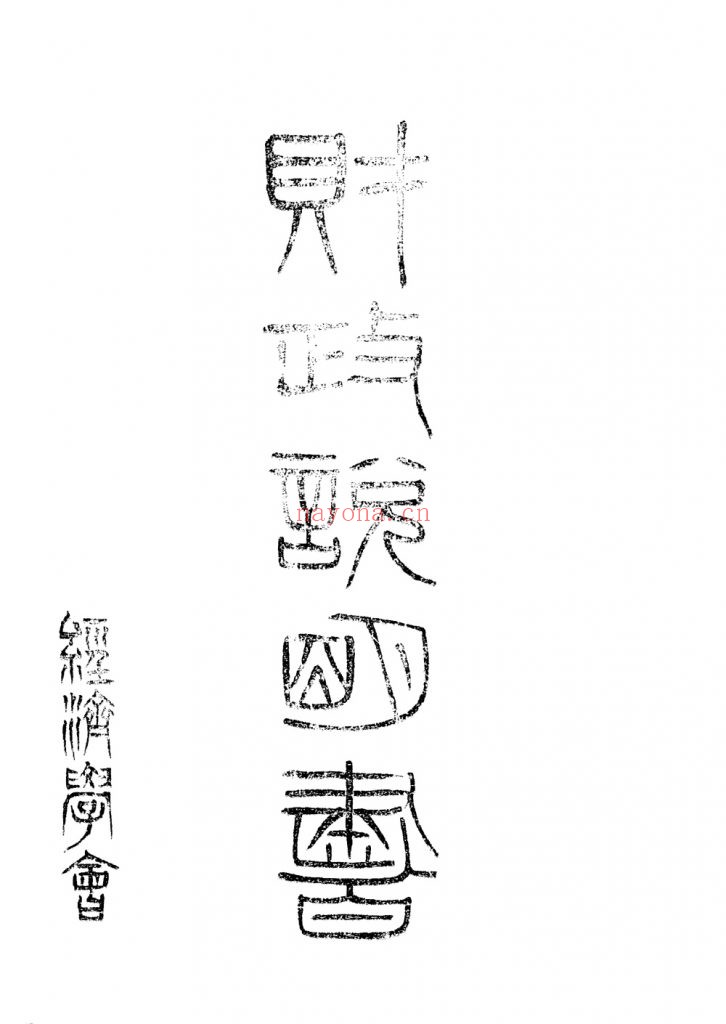 財政說明書
經濟學會
nayona.cn